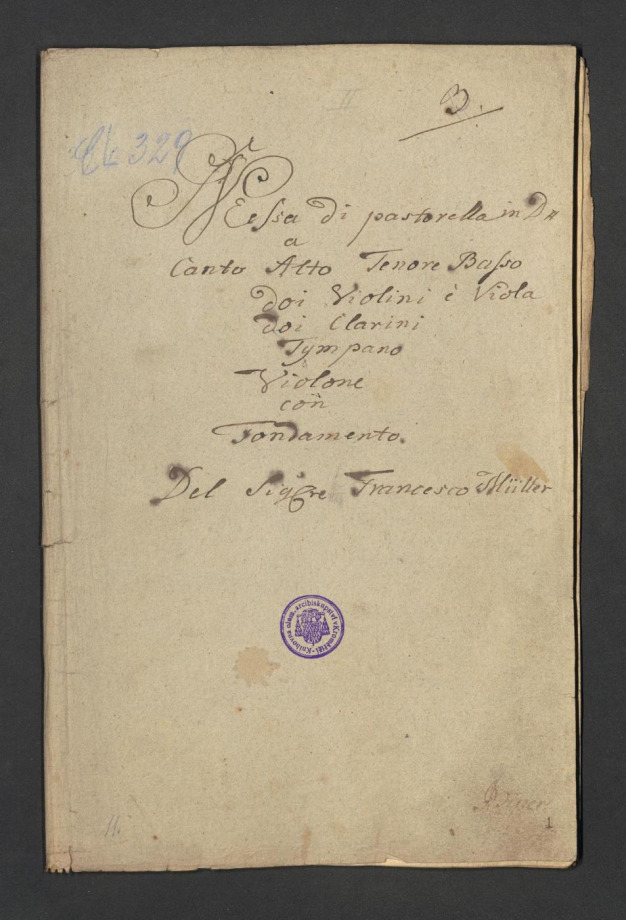 II
B.
329
Messa di pastorella in D#
a
Canto Alto Tenore Basso
doi Violini è Viola
doi Clarini
Tympano
Violone
con
Fondamento.
Del Sigre Francesco Müller
Knihovna olom. arcibiskupství v Kroměříži
11.
1